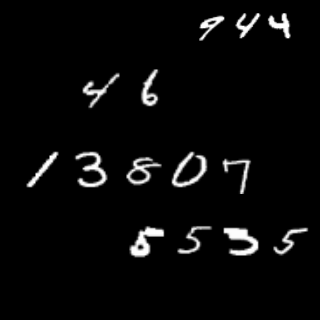 944
46
13807
5535